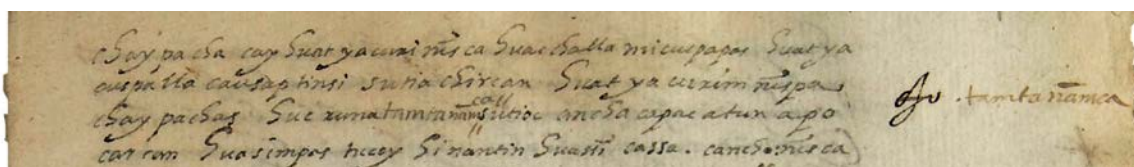 chaypacha cay huatyacuri ñisca huacchalla micuspapas huatya
cuspalla causaptinsi sutiachircan huatyacurim ñispa
chaypachas huc runa tamtañamcaˮ sutioc ancha capac atun apo
carcan huasinpas tucoy hinantin huasiñ cassa . cancho ñisca
ojo . tamtañāmca